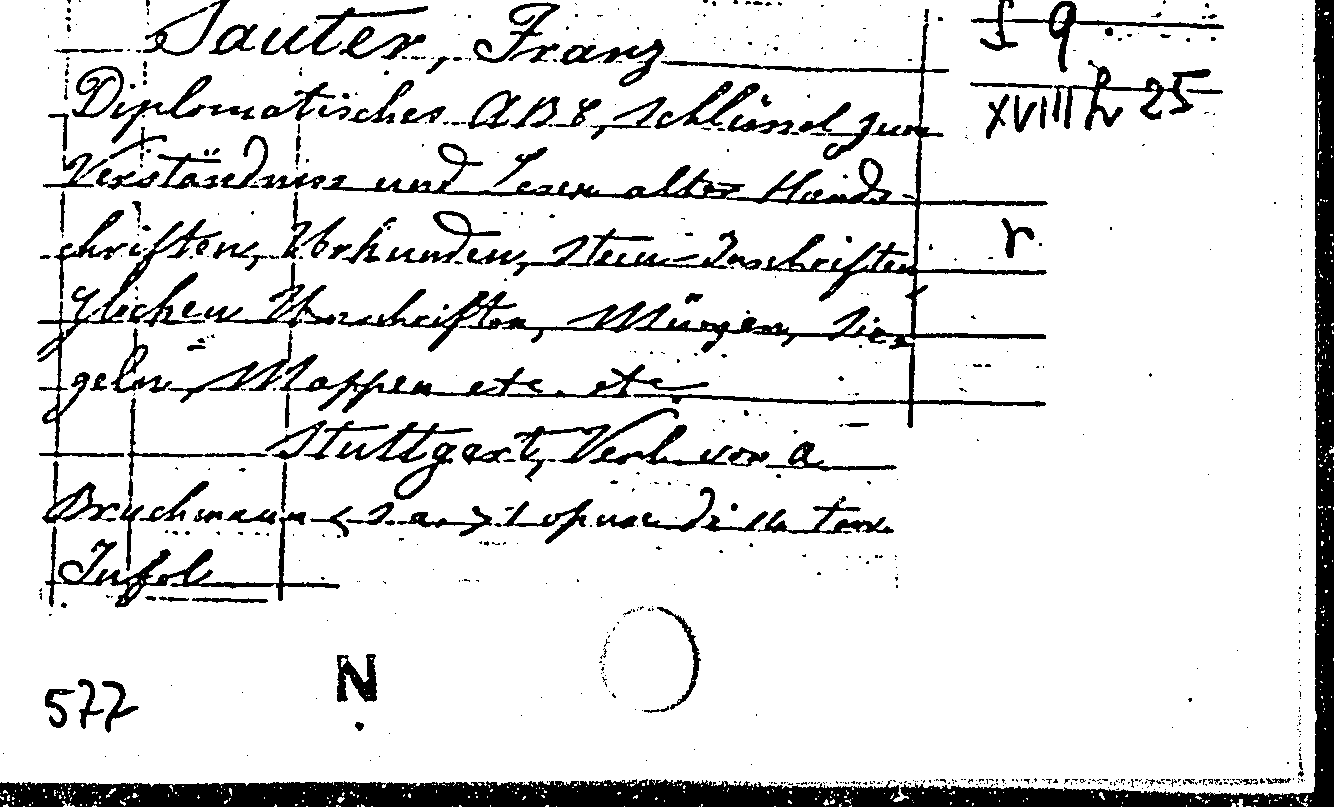 Sauter, Franz
I 9
XVIII h 25
Diplomatisches ABC, Schlüssel zum
Verständniss und Lesen alter Hands-
chriften, Urkunden, Stein-Inschriften
r
Glocken Umschriften, Münzen, Sie-
geln, Wappen etc. etc
Stuttgart, Verl. von A
Bruckmann <s.a.> 1 opusc di 16 tav.
In fol
577
N